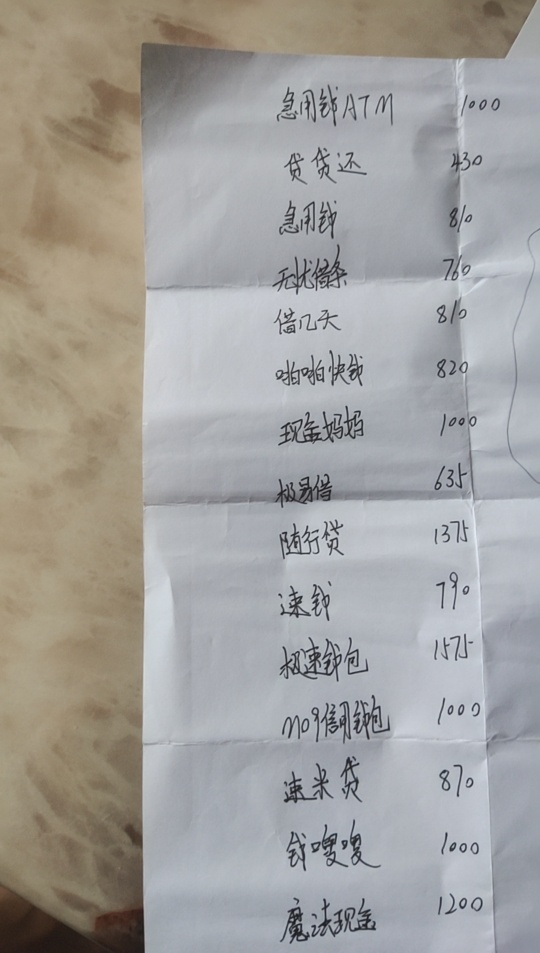 急用钱ATM 1000
贷贷还 430
急用钱 810
无忧借条 760
借几天 810
啪啪快钱 820
现金妈妈 1000
极易借 635
随行贷 1375
速钱 790
极速钱包 1575
no9信用钱包 1000
速米贷 870
钱嗖嗖 1000
魔法现金 1200